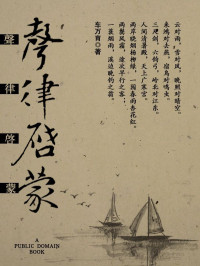 云对雨，雪对风，晚照对晴空。
来鸿对去燕，宿鸟对鸣虫。
三尺剑，六钧弓，岭北对江东。
人间清暑殿，天上广寒宫。
两岸晓烟杨柳绿，一园春雨杏花红。
两鬓风霜，途次早行之客；
一蓑烟雨，溪边晚钓之翁。
车万育◎著
聲律啓蒙
聲律啓蒙
A
PUBLIC DOMAIN
BOOK